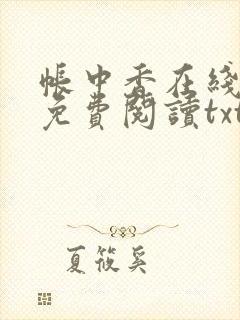 帳中香在綫
免費閱讀txt
夏筱奚